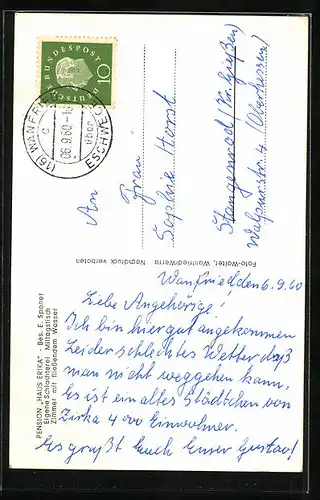 DEUTSCHE BUNDESPOST
10
(16) WANFRIED
c
06.9.60-1
über
ESCHWEGE
An
Frau
Sophie Horst
Stangenrod (Kr. Gießen)
(Oberhessen)
Foto-Walter, Wanfried/Werra   Nachdruck verboten
PENSION „HAUS ERIKA“ - Bes. E. Sponer
Eigene Schlachterei   Mittagstisch
Zimmer mit fließendem Wasser
Wanfried den 6.9.60
Lebe Angehörige!
Ich bin hier gut angekommen
Leider schlechtes Wetter daß
man nicht weggehen kann,
Es ist ein altes Städtchen von
Zirka 4000 Einwohner.
Es grüßt Euch Euer Gustav!